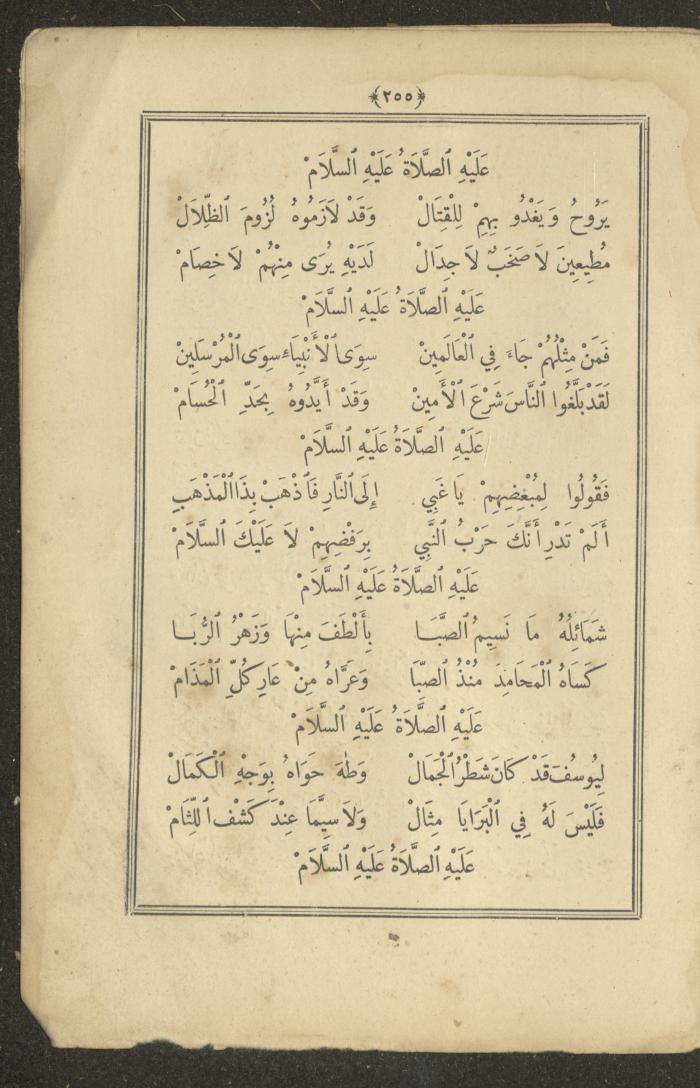 ﴿٢٥٥﴾
عَلَيْهِ ٱلصَّلَاةُ عَلَيْهِ ٱلسَّلَامْ
يَرُوحُ وَيَغْدُو بِهِمْ لِلْقِتَالْ وَقَدْ لَازَمُوهُ لُزُومَ ٱلظِّلَالْ
مُطِيعِينَ لَا صَخَبٌ لَا جِدَالْ لَدَيْهِ يُرَى مِنْهُمْ لَا خِصَامْ
عَلَيْهِ ٱلصَّلَاةُ عَلَيْهِ ٱلسَّلَامْ
فَمَنْ مِثْلُهُمْ جَاءَ فِي ٱلْعَالَمِينْ سِوَى ٱلْأَنْبِيَاءِ سِوَى ٱلْمُرْسَلِينْ
لَقَدْ بَلَّغُوا ٱلنَّاسَ شَرْعَ ٱلْأَمِينْ وَقَدْ أَيَّدُوهُ بِحَدِّ ٱلْحُسَامْ
عَلَيْهِ ٱلصَّلَاةُ عَلَيْهِ ٱلسَّلَامْ
فَقُولُوا لِمُبْغِضِهِمْ يَا غَبِي إِلَى ٱلنَّارِ فَٱذْهَبْ بِذَا ٱلْمَذْهَبِ
أَلَمْ تَدْرِ أَنَّكَ حَرْبُ ٱلنَّبِي بِرَفْضِهِمْ لَا عَلَيْكَ ٱلسَّلَامْ
عَلَيْهِ ٱلصَّلَاةُ عَلَيْهِ ٱلسَّلَامْ
شَمَائِلُهُ مَا نَسِيمُ ٱلصَّبَا بِأَلْطَفَ مِنْهَا وَزَهْرُ ٱلرُّبَا
كَسَاهُ ٱلْمَحَامِدَ مُنْذُ ٱلصِّبَا وَعَرَّاهُ مِنْ عَارِ كُلِّ ٱلْمَذَامْ
عَلَيْهِ ٱلصَّلَاةُ عَلَيْهِ ٱلسَّلَامْ
لِيُوسُفَ قَدْ كَانَ شَطْرُ ٱلْجَمَالْ وَطٰهَ حَوَاهُ بِوَجْهِ ٱلْكَمَالْ
فَلَيْسَ لَهُ فِي ٱلْبَرَايَا مِثَالْ وَلَا سِيَّمَا عِنْدَ كَشْفِ ٱللِّثَامْ
عَلَيْهِ ٱلصَّلَاةُ عَلَيْهِ ٱلسَّلَامْ